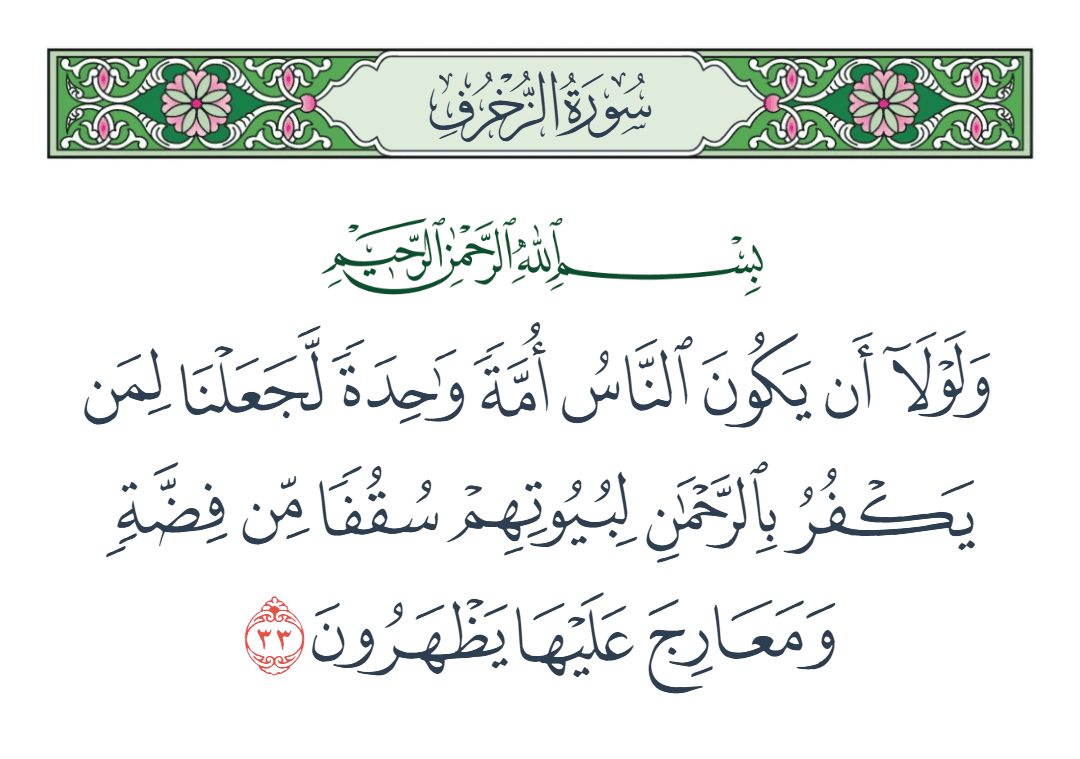 سُورَةُ الزُّخْرُفِ
بِسْمِ ٱللَّهِ ٱلرَّحْمَٰنِ ٱلرَّحِيمِ
وَلَوْلَآ أَن يَكُونَ ٱلنَّاسُ أُمَّةً وَٰحِدَةً لَّجَعَلْنَا لِمَن
يَكْفُرُ بِٱلرَّحْمَٰنِ لِبُيُوتِهِمْ سُقُفًا مِّن فِضَّةٍ
وَمَعَارِجَ عَلَيْهَا يَظْهَرُونَ ٣٣